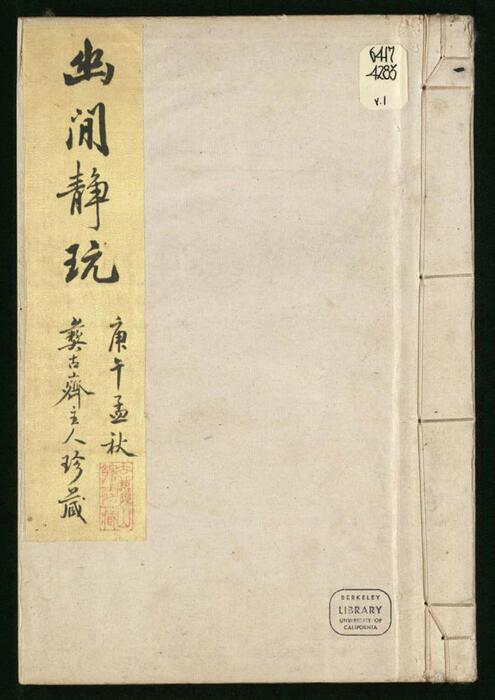 幽閒静玩
庚午孟秋
彜古齋主人珍藏
6417
4285
v.1
BERKELEY
LIBRARY
UNIVERSITY OF
CALIFORNIA